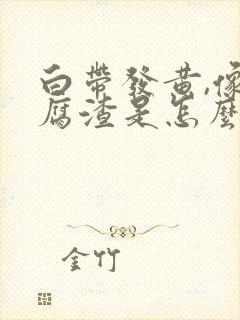 白帶發黃,像
腐渣是怎麼
金竹